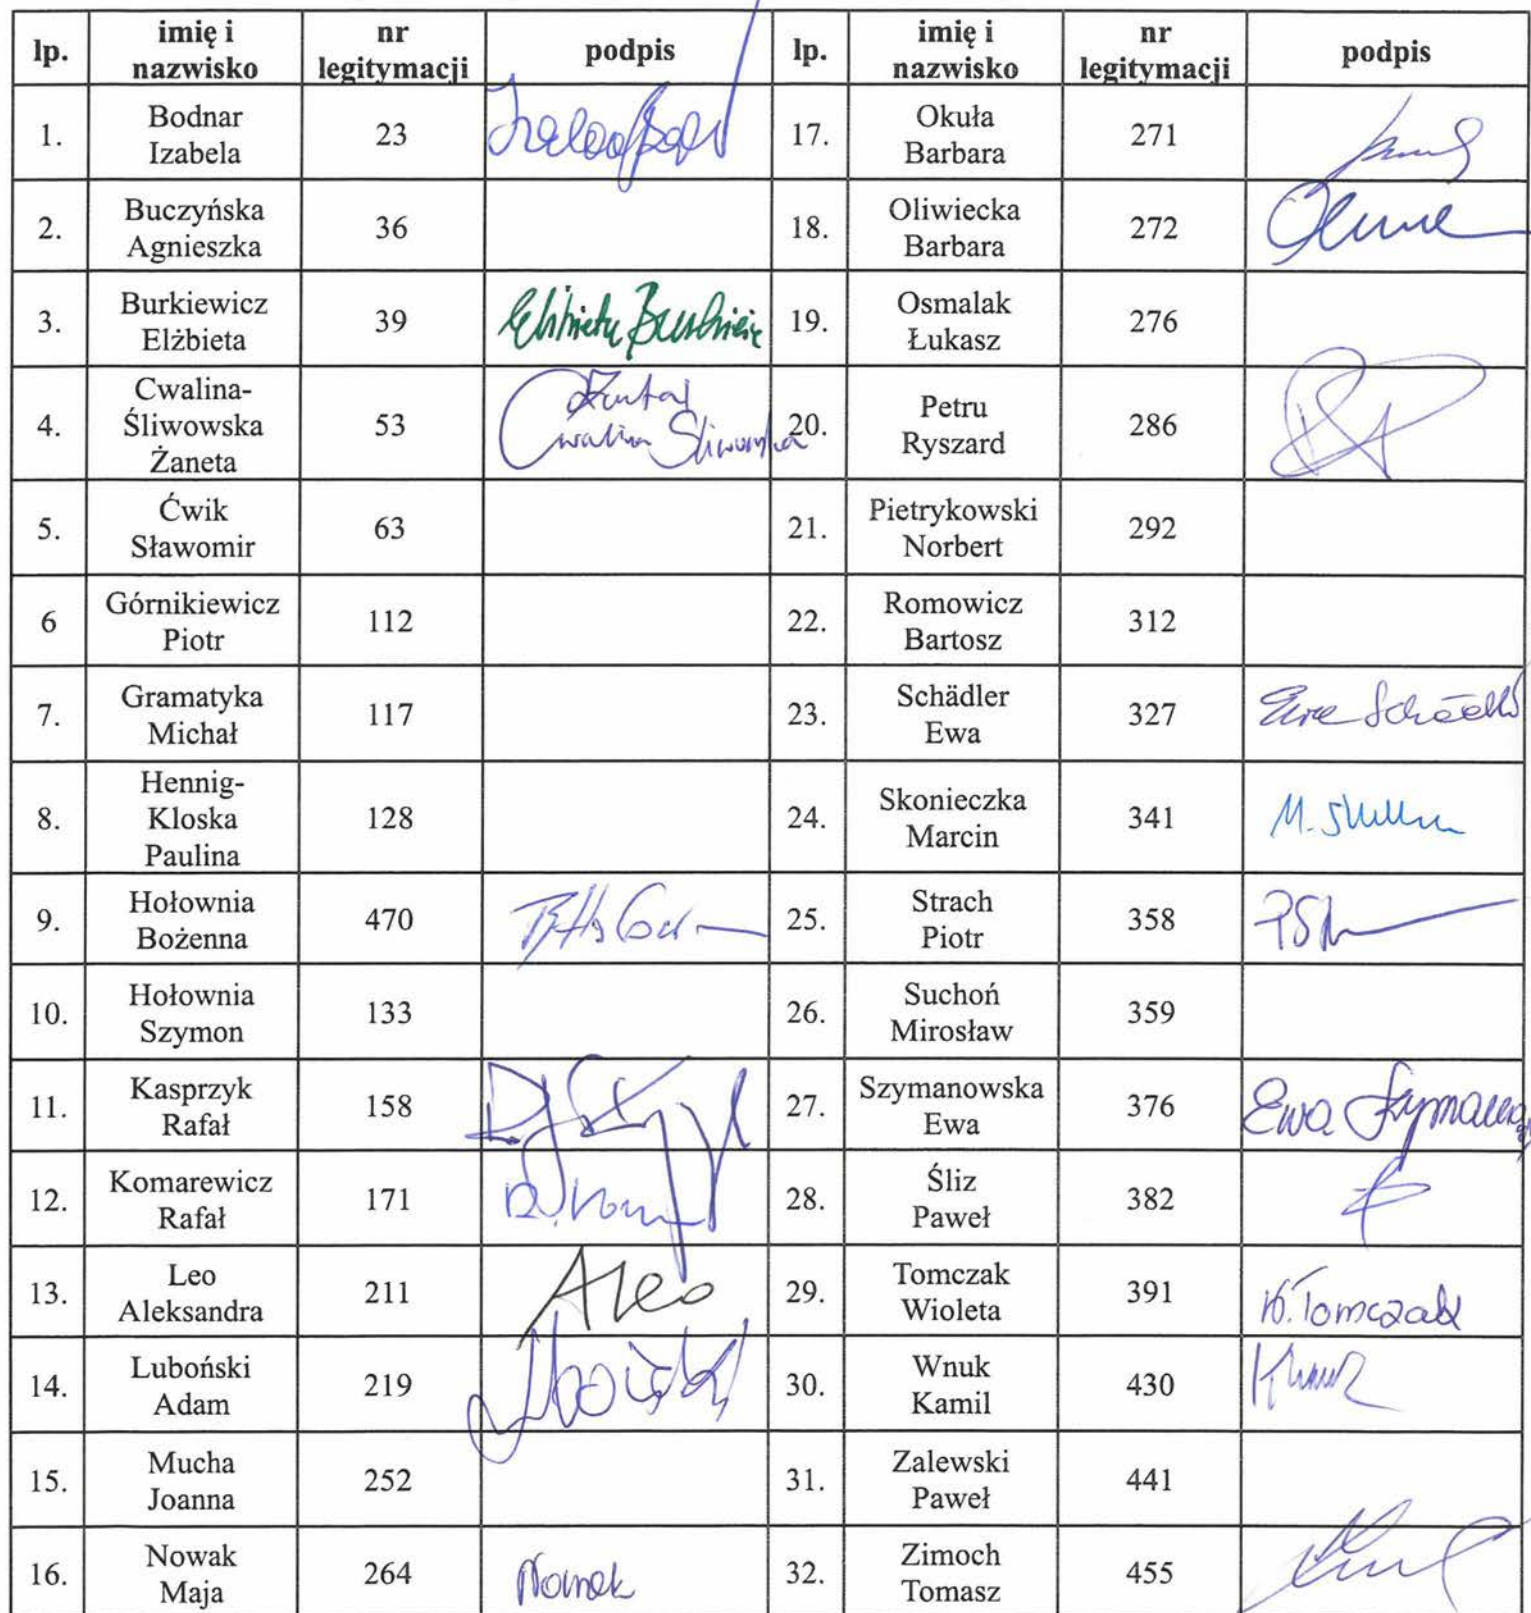 lp. imię i nazwisko nr legitymacji podpis lp. imię i nazwisko nr legitymacji podpis
1. Bodnar Izabela 23 17. Okuła Barbara 271
2. Buczyńska Agnieszka 36 18. Oliwiecka Barbara 272
3. Burkiewicz Elżbieta 39 19. Osmalak Łukasz 276
4. Cwalina-Śliwowska Żaneta 53 Żaneta Cwalina Śliwowska 20. Petru Ryszard 286
5. Ćwik Sławomir 63 21. Pietrykowski Norbert 292
6 Górnikiewicz Piotr 112 22. Romowicz Bartosz 312
7. Gramatyka Michał 117 23. Schädler Ewa 327
8. Hennig-Kloska Paulina 128 24. Skonieczka Marcin 341
9. Hołownia Bożenna 470 25. Strach Piotr 358
10. Hołownia Szymon 133 26. Suchoń Mirosław 359
11. Kasprzyk Rafał 158 27. Szymanowska Ewa 376 Ewa
12. Komarewicz Rafał 171 28. Śliz Paweł 382
13. Leo Aleksandra 211 ALeo 29. Tomczak Wioleta 391 W. Tomczak
14. Luboński Adam 219 30. Wnuk Kamil 430
15. Mucha Joanna 252 31. Zalewski Paweł 441
16. Nowak Maja 264 Nowak 32. Zimoch Tomasz 455